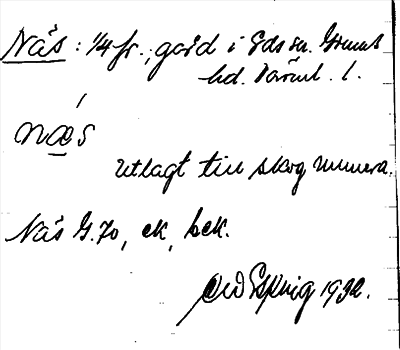 Näs: 1/4 fr., gård i Eds sn. Grums
hd. Värml. l.
næ´s
Utlagt till skog numera.
Näs G. 70, ek, bek.
1932.